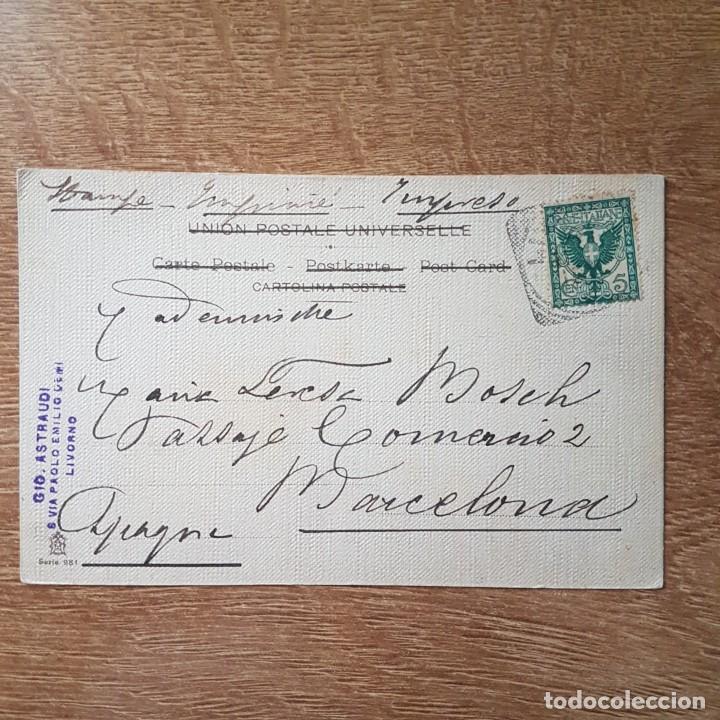 Stampe - Imprimé - Impreso
UNION POSTALE UNIVERSELLE
Carte Postale - Postkarte - Post Card
CARTOLINA POSTALE
POSTE ITALIANE
CENTESIMI 5
Mademoiselle
Maria Teresa Bosch
Passaje Comercio 2
Barcelona
Espagne
GIO. ASTRAUDI
8 VIA PAOLO EMILIO DEMI
LIVORNO
Serie 981
todocoleccion